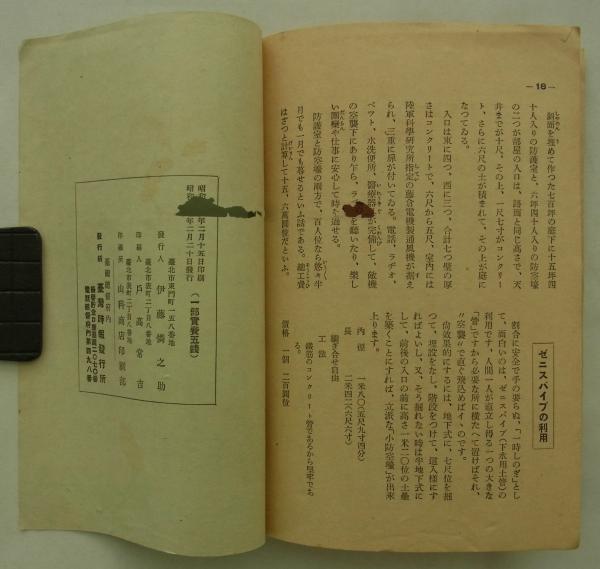 —18—
斜面を埋めて作つた七百坪の庭下に十五坪四
十人入りの防護室と、六坪四十人入りの防空壕
の二つが部屋の入口は、路面と同じ高さで、天
井までが十尺、その上、一尺七寸がコンクリー
ト、さらに六尺の土が積まれて、その上が庭に
なつてゐる。
入口は東に四つ、西に三つ、合計七つ壁の厚
さはコンクリートで、六尺から五尺、室内には
陸軍科學研究所指定の藤倉電機製通風機が据え
られ、三重に扉が付いてゐる。電話、ラヂオ、
ベツト、水洗便所、醫療器が完備して、敵機
の空襲下にあり乍ら、ラを聽いたり、樂し
い團欒や仕事に安心して時を過せる。
防護室と防空壕の兩方で、百人位なら悠々半
月でも一月でも暮せるといふ話である。總工費
はざつと計算して十五、六萬圓位だといふ。
ゼニスパイプの利用
割合に安全で手の要らぬ、「一時しのぎ」とし
て、面白いのは、ゼニスパイプ(下水用土管)の
利用です。人間一人が直立し得る一つの大きな
「管」ですから必要な所に横たへて置けばそれ、
〃空襲〃で直ぐ飛込めばイヽのです。
尙效果的にするには、地下式に、七尺位を掘
つて、埋設をなし、階段をつけて、這入樣にす
ればよいし、又、そう掘れない時は半地下式に
して、前後の入口の前に高さ一米二〇位の土壘
を築くことにすれば、立派な「小防空壕」が出來
上ります。
內徑 一米八〇(五尺九寸四分)
長 二米四二(六尺寸)
繼ぎ合せ自由
工法
鐵筋のコンクリート勞であるから堅牢であ
る。
價格 一個 二百圓位
昭和年二月十五日印刷
昭和年二月二十日發行
(一部實費五錢)
臺北市東門町一五八番地
發行人 伊藤憐之助
臺北市表町二丁目八番地
印刷人 戶高常吉
臺北市表町二丁目八番地
印刷所 山科商店印刷部
臺灣總督府內
發行所 臺灣時報發行所
振替貯金口座臺灣一〇七〇番
電話總督府內第四九八番